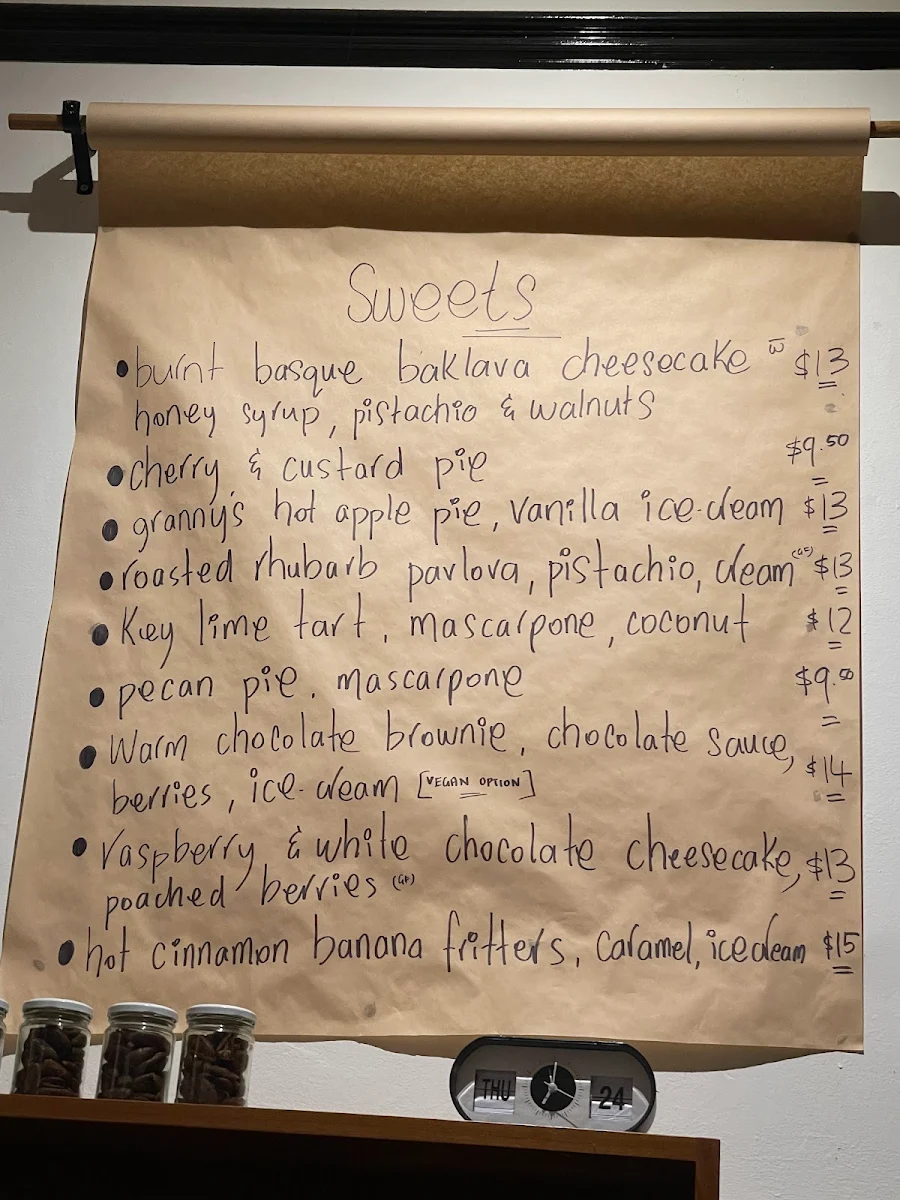 Sweets
• burnt basque baklava cheesecake w̅ $13
honey syrup, pistachio & walnuts
• cherry & custard pie $9.50
• granny's hot apple pie, vanilla ice-cream $13
• roasted rhubarb pavlova, pistachio, cream (GF) $13
• Key lime tart, mascarpone, coconut $12
• pecan pie, mascarpone $9.50
• Warm chocolate brownie, chocolate sauce, $14
berries, ice-cream [VEGAN OPTION]
• raspberry & white chocolate cheesecake, $13
poached berries (GF)
• hot cinnamon banana fritters, caramel, icecream $15
THU 24